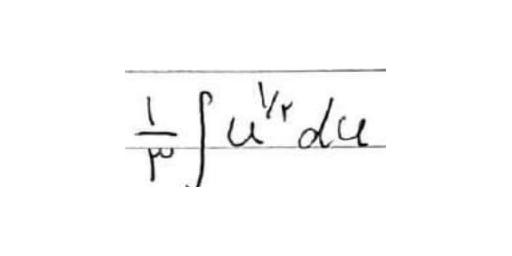 \frac{۱}{۳} \int u^{۱/۲} du